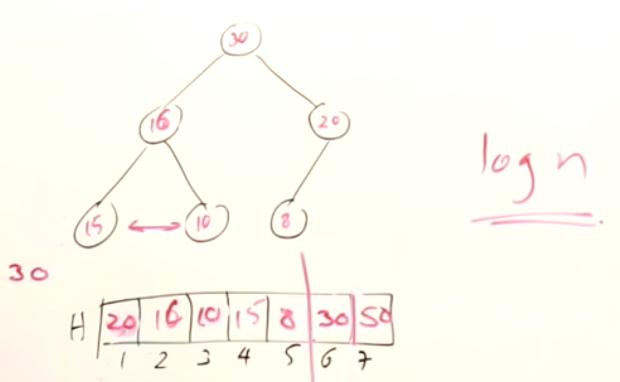 30
16 20
15 10 8
log n
30
H 20 16 10 15 8 30 50
1 2 3 4 5 6 7